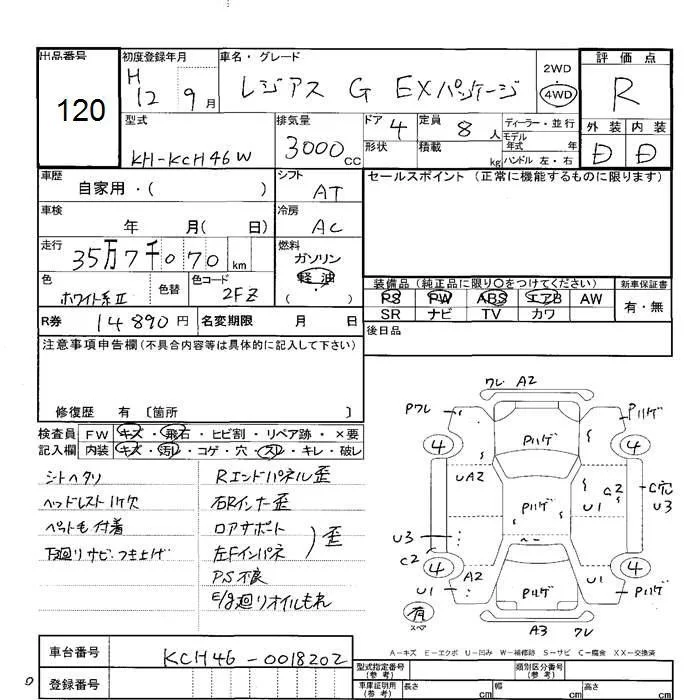 出品番号
120
初度登録年月
H
12 9月
車名・グレード
レジアス G EXパッケージ
2WD
・
4WD
評価点
R
外装 内装
D D
型式
KH-KCH46W
排気量
3000CC
ドア 4
定員 8人
ディーラー・並行
モデル年式 年
形状
積載 kg
ハンドル 左・右
車歴
自家用・( )
シフト
AT
セールスポイント (正常に機能するものに限ります)
車検
年 月( 日)
冷房
AC
走行
35万7千070km
燃料
ガソリン
軽油
( ・ )
色
ホワイト系II
色替
色コード
2FZ
装備品 (純正品に限り〇をつけてください)
新車保証書
PS PW ABS エアB AW
SR ナビ TV カワ
有・無
R券 14890円
名変期限 月 日
後日品
注意事項申告欄(不具合内容等は具体的に記入して下さい)
修復歴 有 〔箇所 〕
検査員記入欄
FW キズ・飛石・ヒビ割・リペア跡・×要
内装 キズ・汚レ・コゲ・穴・スレ・キレ・破レ
シートヘタリ
ヘッドレスト1ケ欠
ペット毛付着
下廻りサビ・つき上げ
Rエンドパネル歪
右Rインナー歪
ロアサポート
左Fインパネ
歪
PS不良
E/g廻りオイルもれ
ワレ A2
Pワレ
Pハゲ
Pハゲ
4
4
UA2
C2
U1
C穴
U3
Pハゲ
U3
C2
4
4
A2
U1
U1
Pハゲ
Pハゲ
有
スペア
A3 ワレ
A-キズ E-エクボ U-凹み W-補修跡 S-サビ C-腐食 XX-交換済
車台番号
KCH46-0018202
登録番号
型式指定番号
(参考)
類別区分番号
(参考)
車庫証明用
(参考)
長さ cm
幅 cm
高さ cm